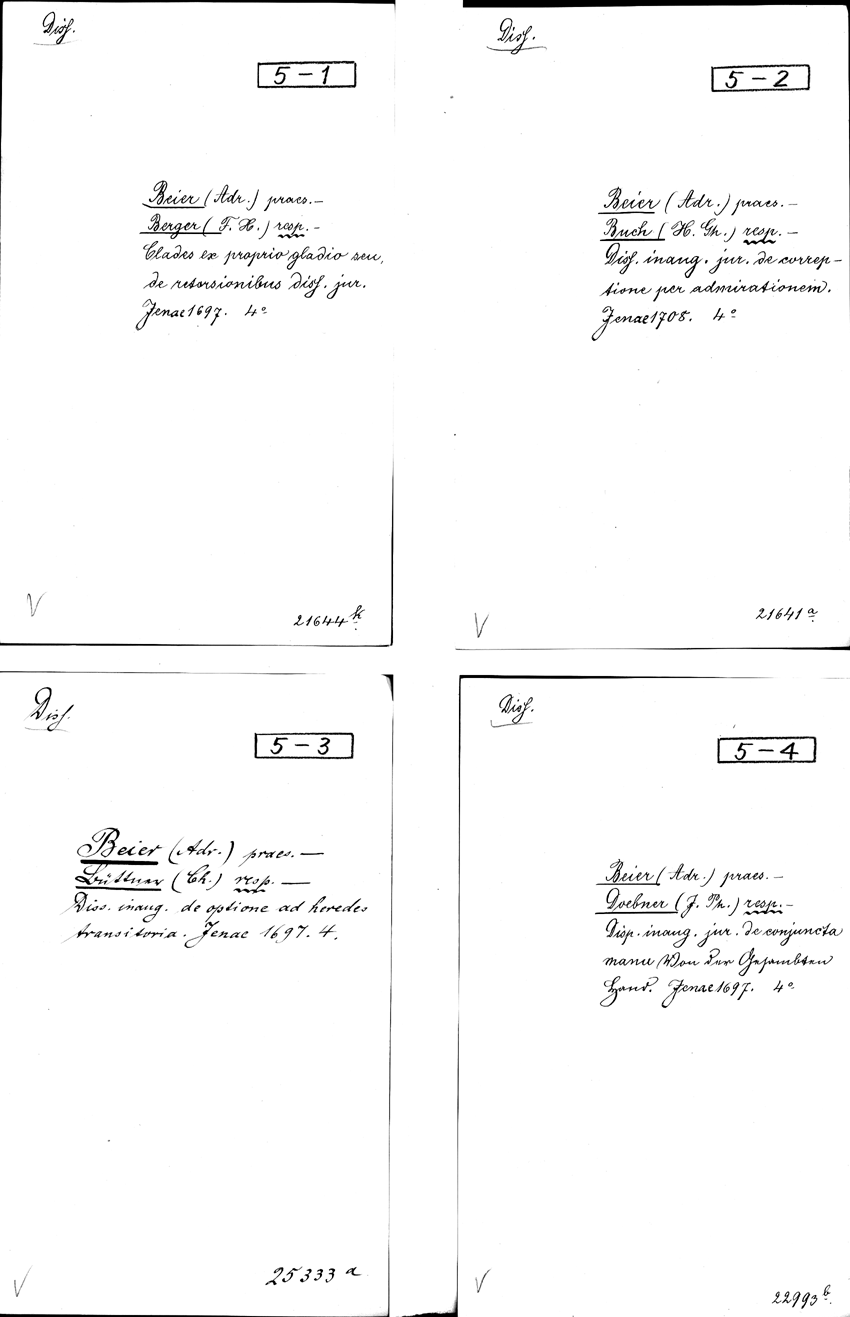 Diss.
5-1
Beier (Adr.) praes.—
Berger (F. H.) resp.—
Clades ex proprio gladio seu,
de retorsionibus diss. jur.
Jenae 1697. 4°
V
21644 k
Diss.
5-2
Beier (Adr.) praes.—
Buch (H. Gh.) resp.—
Diss. inaug. jur. de correp-
tione per admirationem.
Jenae 1708. 4°
V
21641 a
Diss.
5-3
Beier (Adr.) praes.—
Büttner (Ch.) resp.—
Diss. inaug. de optione ad heredes
transitoria. Jenae 1697. 4.
V
25333 a
Diss.
5-4
Beier (Adr.) praes.—
Doebner (J. Ph.) resp.—
Disp. inaug. jur. de conjuncta
manu Von der Gesambten
Hand. Jenae 1697. 4°
V
22993 b